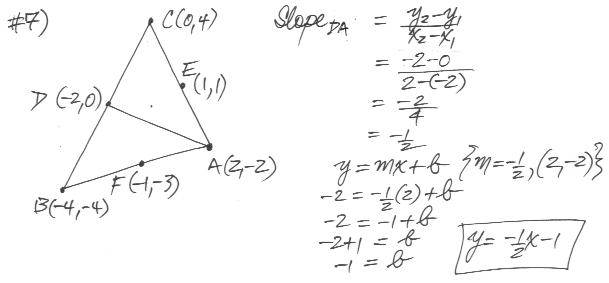 #7)
C(0,4)
E
(1,1)
D(-2,0)
A(2,-2)
F(-1,-3)
B(-4,-4)
Slope DA = y₂-y₁ / x₂-x₁
= -2-0 / 2-(-2)
= -2/4
= -1/2
y=mx+b {m=-1/2, (2,-2)}
-2=-1/2(2)+b
-2=-1+b
-2+1=b
-1=b
y=-1/2x-1